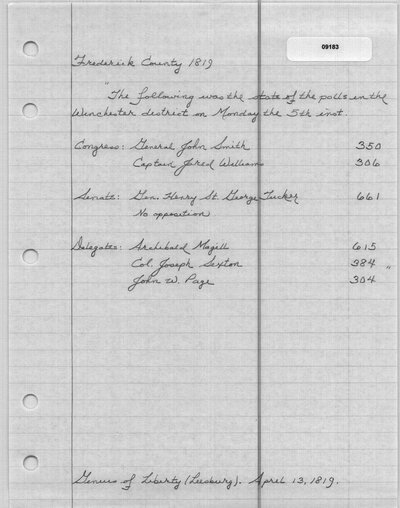 09183
Frederick County 1819
"The following was the state of the polls in the
Winchester district on Monday the 5th inst.
Congress: General John Smith 350
Captain Jared Williams 306
Senate: Gen. Henry St. George Tucker 661
No opposition
Delegates: Archibald Magill 615
Col. Joseph Sexton 384
John W. Page 304 "
Genius of Liberty (Leesburg). April 13, 1819.